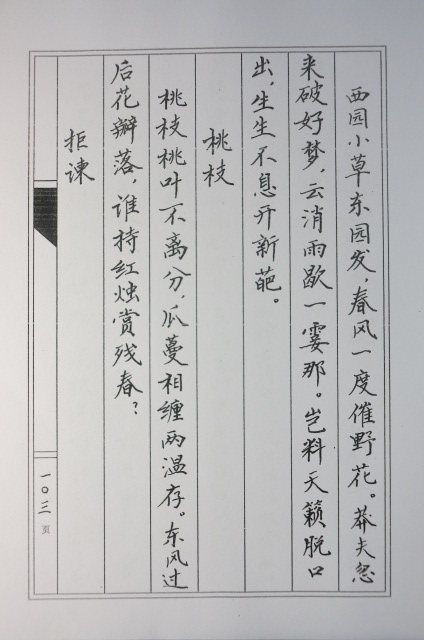 西园小草东园发，春风一度催野花。莽夫忽
来破好梦，云消雨歇一霎那。岂料天籁脱口
出，生生不息开新葩。
桃枝
桃枝桃叶不离分，瓜蔓相缠两温存。东风过
后花瓣落，谁持红烛赏残春？
拒谏
一〇三页